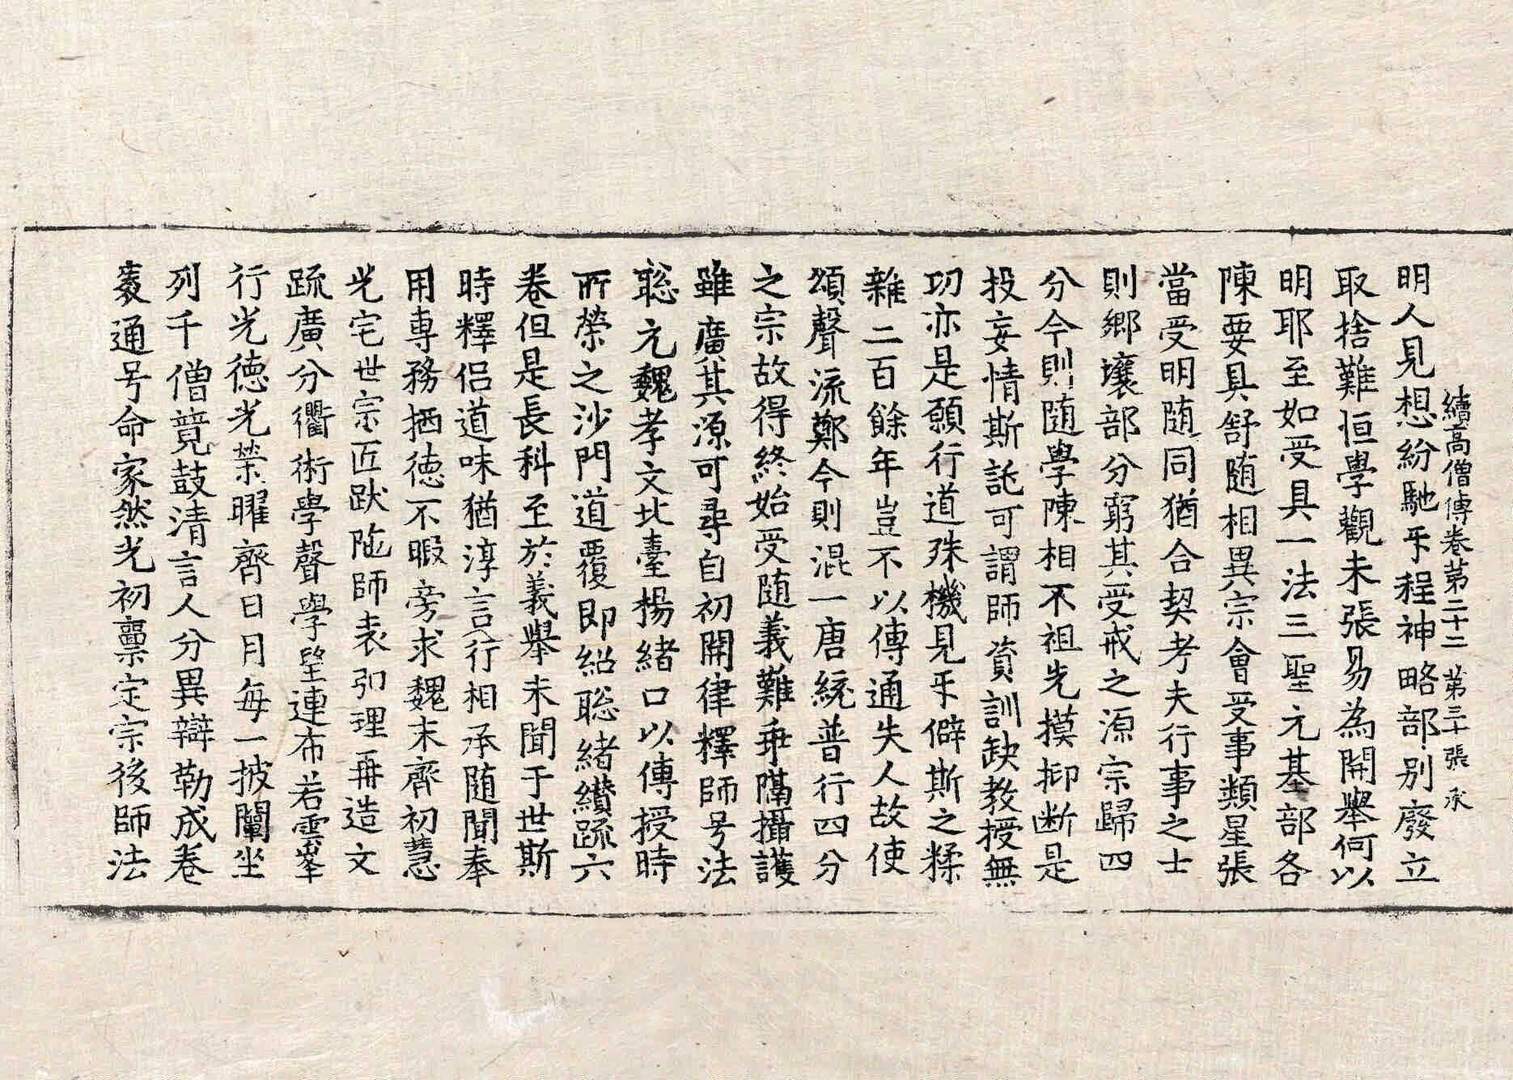 續高僧傳卷第二十二 第三十張 承
明人見想紛馳乎程神略部別廢立
取捨難恒學觀未張易為開舉何以
明耶至如受具一法三聖元基部各
陳要具舒随相異宗會受事類星張
當受明随同猶合契考夫行事之士
則鄉壤部分窮其受戒之源宗歸四
分今則随學陳相不祖先摸抑断是
投妄情斯託可謂師資訓缺教授無
功亦是願行道殊機見乎僻斯之糅
雜二百餘年豈不以傳通失人故使
頌聲流鄭今則混一唐統普行四分
之宗故得終始受随義難乖隔攝護
雖廣其源可尋自初開律釋師号法
聡元魏孝文北臺楊緒口以傳授時
所榮之沙門道覆即紹聡緒纘䟽六
卷但是長科至於義舉未聞于世斯
時釋侣道味猶淳言行相承随聞奉
用専務栖徳不暇旁求魏末齊初慧
光宅世宗匠跋陁師表弘理再造文
䟽廣分衢術學聲學望連布若雲峯
行光徳光榮曜齊日月每一披闡坐
列千僧竟鼓清言人分異辯勒成卷
袠通号命家然光初稟定宗後師法